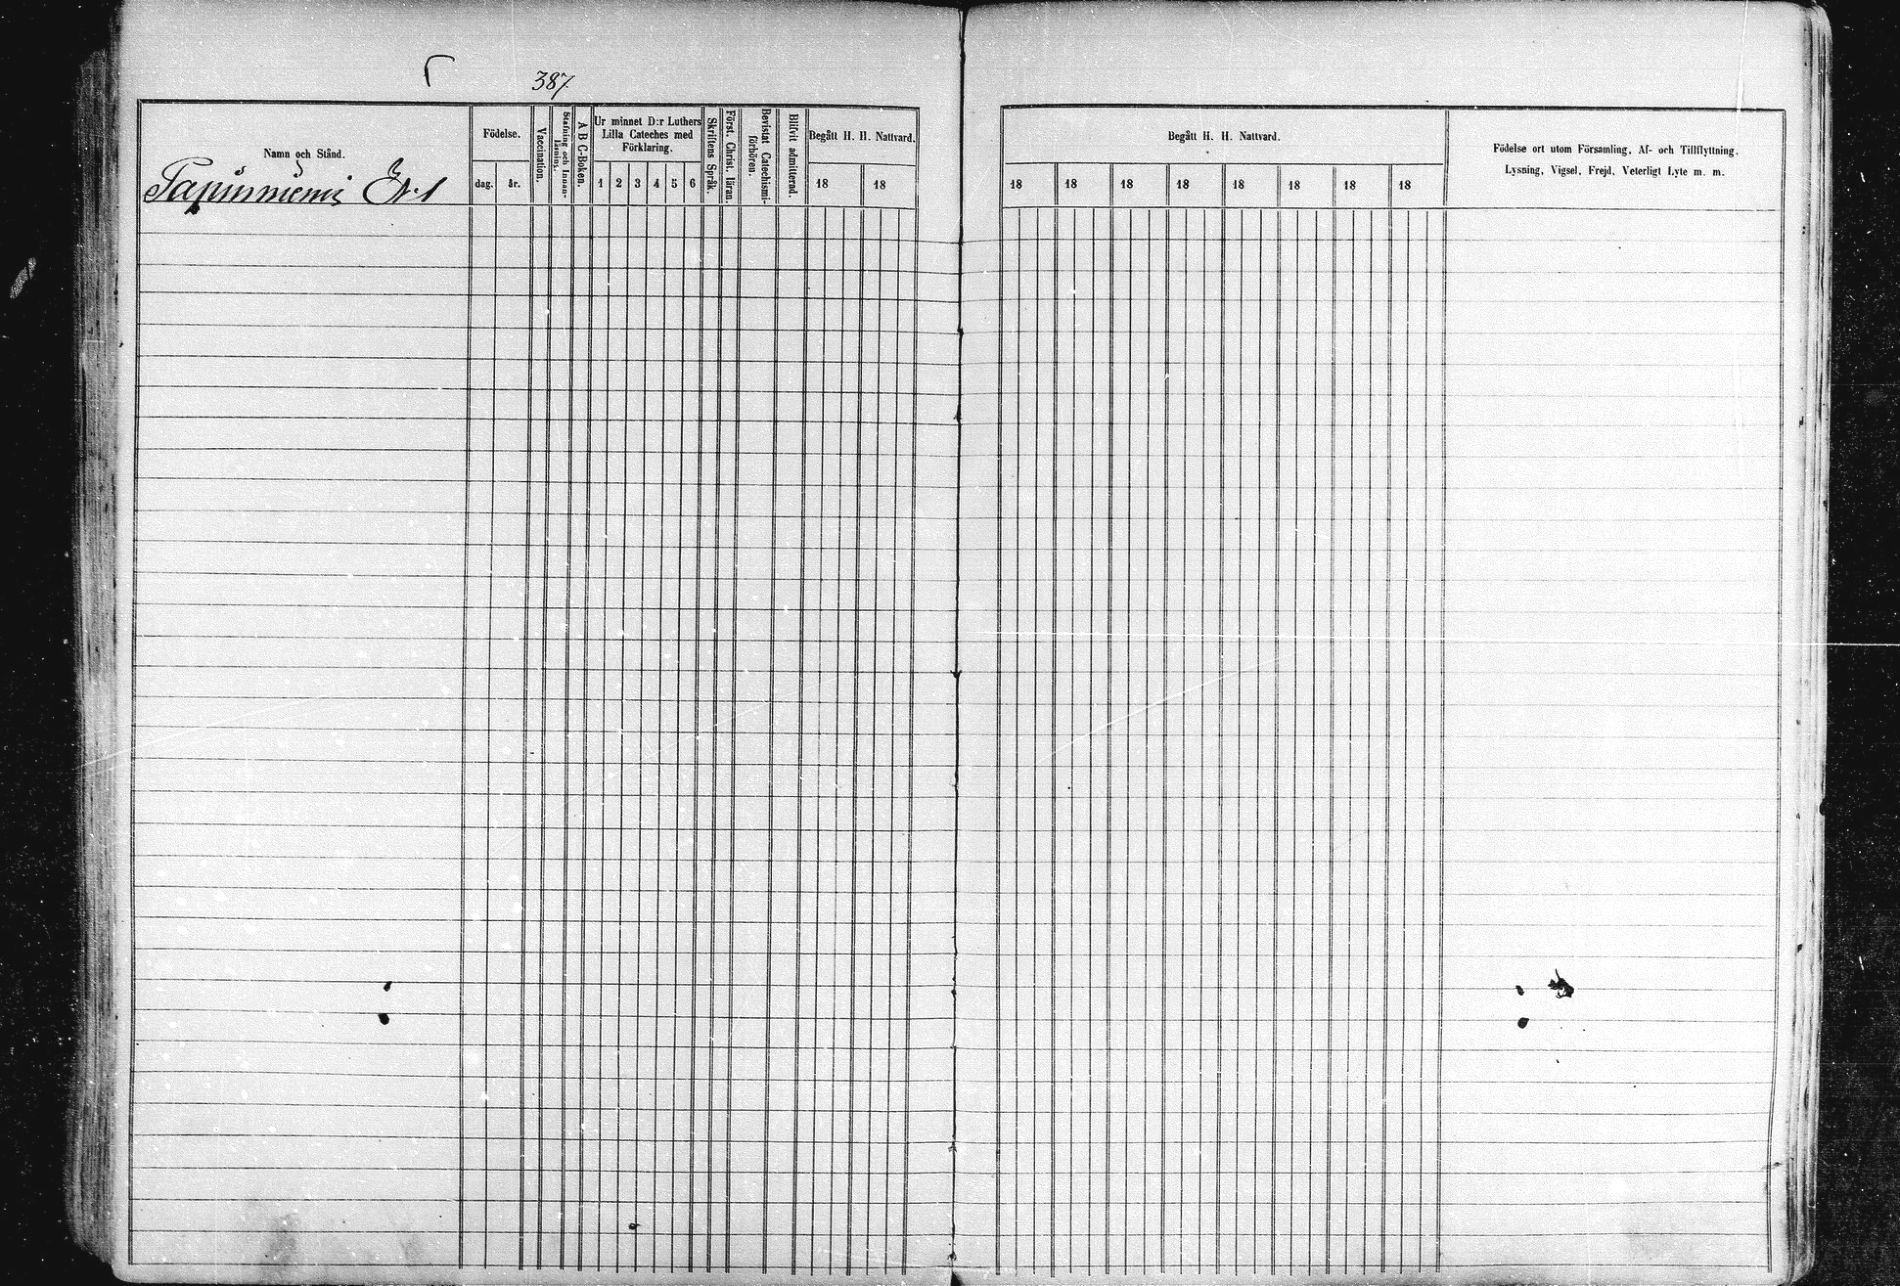 387
Namn och Stånd.
Födelse.
dag.
år.
Vaccination.
Stafning och Innan-
läsning.
A B C-Boken.
Ur minnet D:r Luthers
Lilla Cateches med
Förklaring.
1 2 3 4 5 6
Skriftens Språk.
Först. Christ. läran.
Bevistat Catechismi-
förhören.
Blifvit admitterad.
Begått H. H. Nattvard.
18 18
Begått H. H. Nattvard.
18 18 18 18 18 18 18 18
Födelse ort utom Församling, Af- och Tillflyttning,
Lysning, Vigsel, Frejd, Veterligt Lyte m. m.